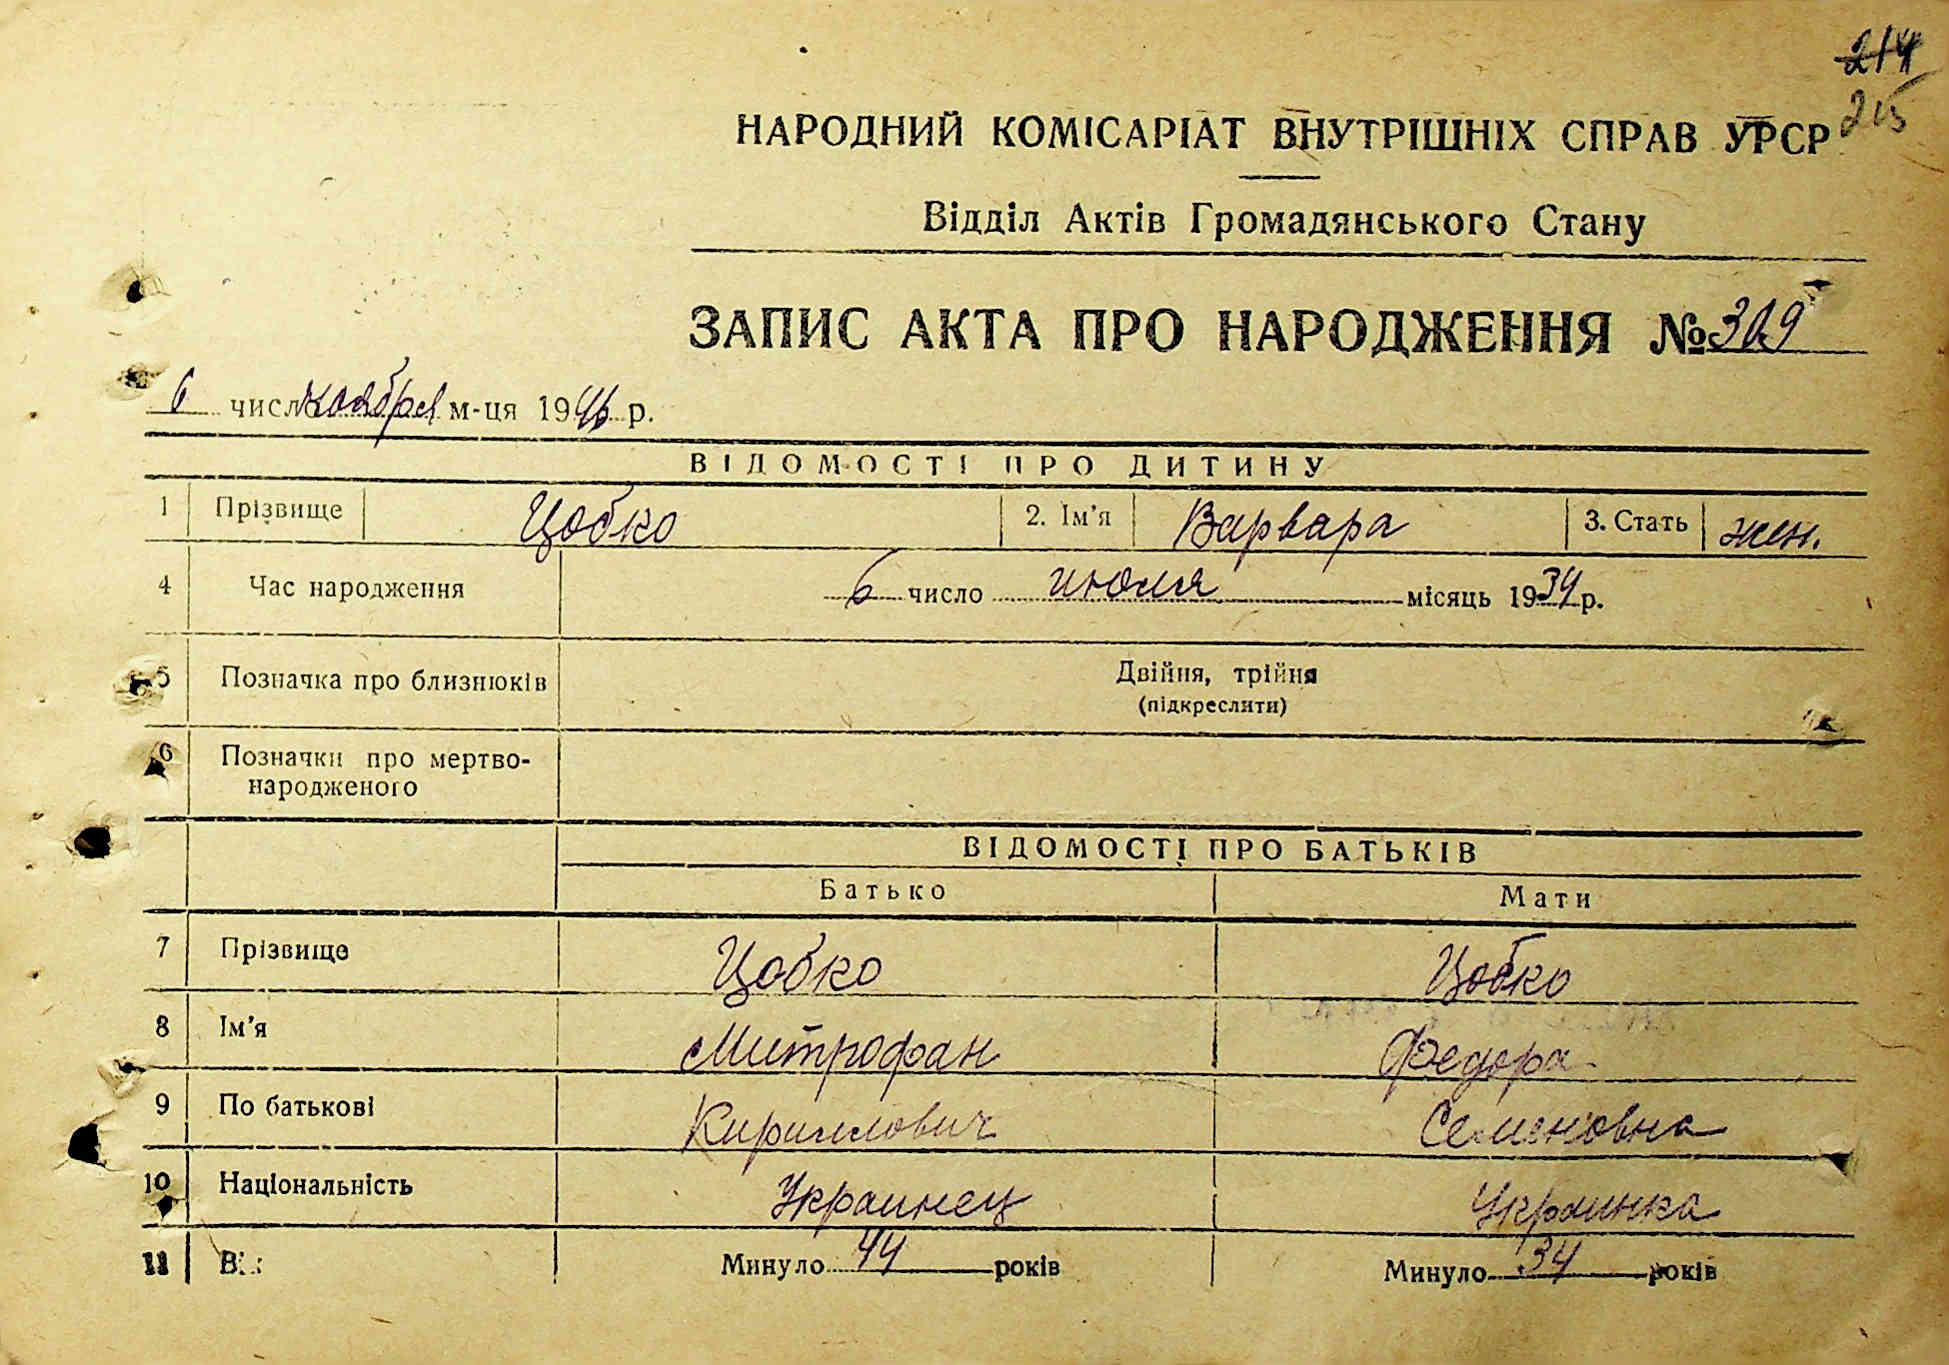 214
215
НАРОДНИЙ КОМІСАРІАТ ВНУТРІШНІХ СПРАВ УРСР
Відділ Актів Громадянського Стану
ЗАПИС АКТА ПРО НАРОДЖЕННЯ № 309
6 число ноября м-ця 1946 р.
ВІДОМОСТІ ПРО ДИТИНУ
1 Прізвище Цобко 2. Ім'я Варвара 3. Стать жен.
4 Час народження 6 число июля місяць 1934 р.
5 Позначка про близнюків Двійня, трійня
(підкреслити)
6 Позначки про мертво-
народженого
ВІДОМОСТІ ПРО БАТЬКІВ
Батько Мати
7 Прізвище Цобко Цобко
8 Ім'я Митрофан Федора
9 По батькові Кириллович Семеновна
10 Національність Украинец Украинка
11 Вік Минуло 44 років Минуло 34 років